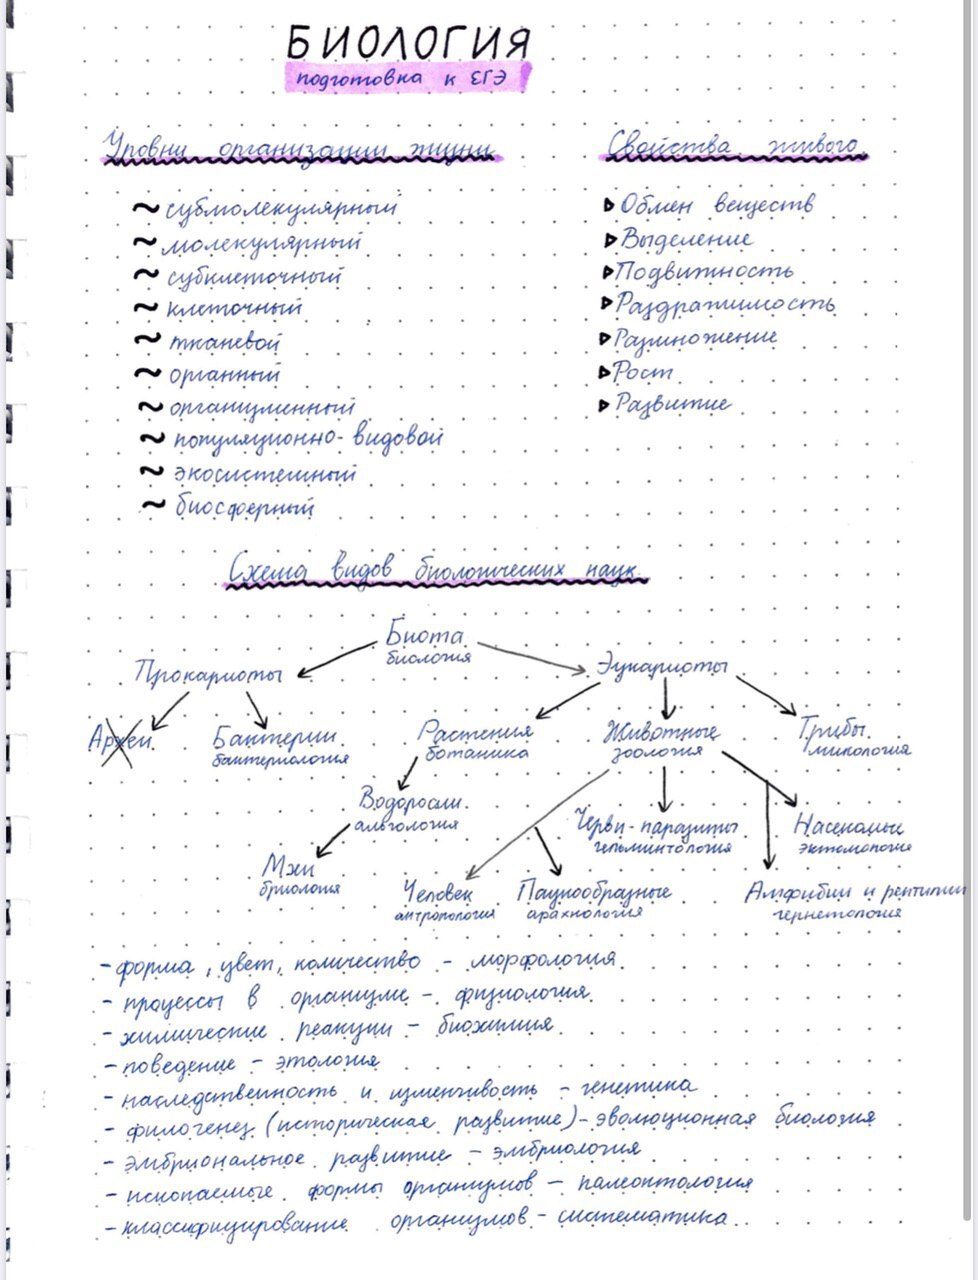 БИОЛОГИЯ
подготовка к ЕГЭ
Уровни организации жизни
~ субмолекулярный
~ молекулярный
~ субклеточный
~ клеточный
~ тканевой
~ органный
~ организменный
~ популяционно-видовой
~ экосистемный
~ биосферный
Свойства живого
Обмен веществ
Выделение
Подвижность
Раздражимость
Размножение
Рост
Развитие
Схема видов биологических наук.
Биота
биология
Прокариоты
Эукариоты
Археи
Бактерии
бактериология
Растения
ботаника
Животные
зоология
Грибы
микология
Водоросли
альгология
Черви-паразиты
гельминтология
Насекомые
энтомология
Мхи
бриология
Человек
антропология
Паукообразные
арахнология
Амфибии и рептилии
герпетология
- форма, цвет, количество - морфология
- процессы в организме - физиология
- химические реакции - биохимия
- поведение - этология
- наследственность и изменчивость - генетика
- филогенез (историческая развитие) - эволюционная биология
- эмбриональное развитие - эмбриология
- ископаемые формы организмов - палеонтология
- классифицирование организмов - систематика